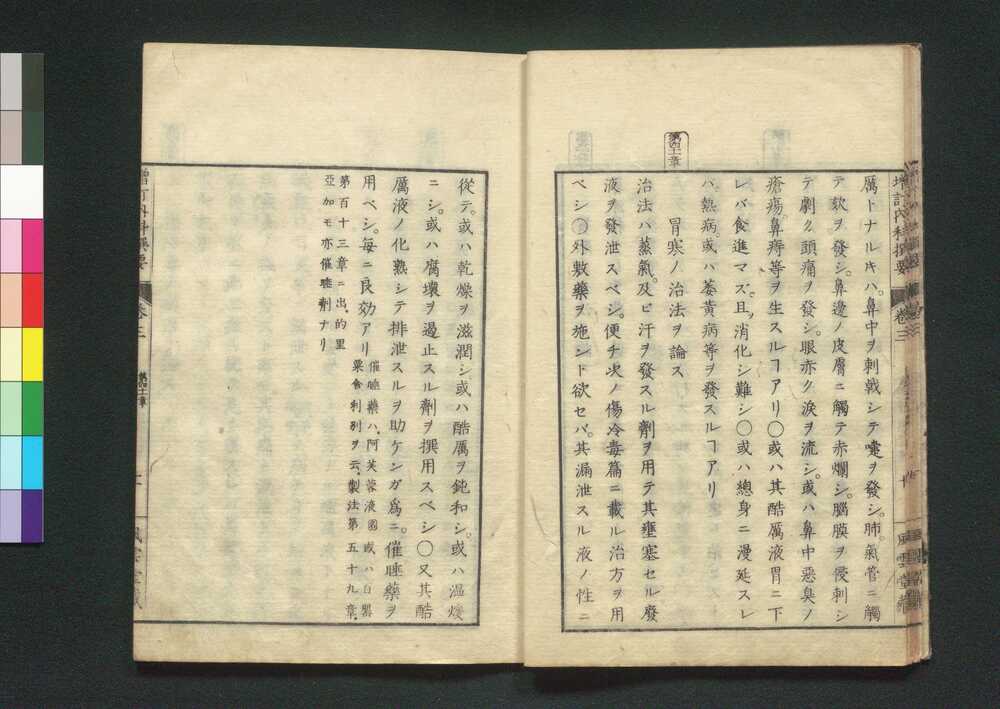 増訂內科撰要
卷三
風雲堂藏
厲トナルキハ。鼻中ヲ刺戟シテ嚏ヲ發シ。肺氣管ニ觸
テ欬ヲ發シ。鼻邊ノ皮膚ニ觸テ赤爛シ。腦膜ヲ侵刺シ
テ劇ク頭痛ヲ發シ。眼赤ク淚ヲ流シ。或ハ鼻中惡臭ノ
瘡瘍。鼻痔等ヲ生スルコアリ〇或ハ其酷厲液胃ニ下
レバ食進マズ。且ツ消化シ難シ〇或ハ總身ニ漫延スレ
バ。熱病。或ハ萎黃病等ヲ發スルコアリ
第四十二章
冒寒ノ治法ヲ論ス
治法ハ蒸氣。及ビ汗ヲ發スル劑ヲ用テ其壅塞セル廢
液ヲ發泄スベシ。便チ次ノ傷冷毒篇ニ載ル治方ヲ用
ベシ〇外敷藥ヲ施ント欲セバ。其漏泄スル液ノ性ニ
從テ。或ハ乾燥ヲ滋潤シ。或ハ酷厲ヲ鈍和シ。或ハ溫煖
ニシ。或ハ腐壞ヲ遏止スル劑ヲ撰用スベシ〇又其酷
厲液ノ化熟シテ排泄スルヲ助ケンガ爲ニ。催唾藥ヲ
用ベシ。每ニ良効アリ
催唾藥ハ。阿芙蓉液
或ハ白罌
粟舍利別ヲ云。製法第五十九章。
第百十三章ニ出。的里
亞加モ亦催唾劑ナリ
增訂內科撰要
卷三
風雲堂藏